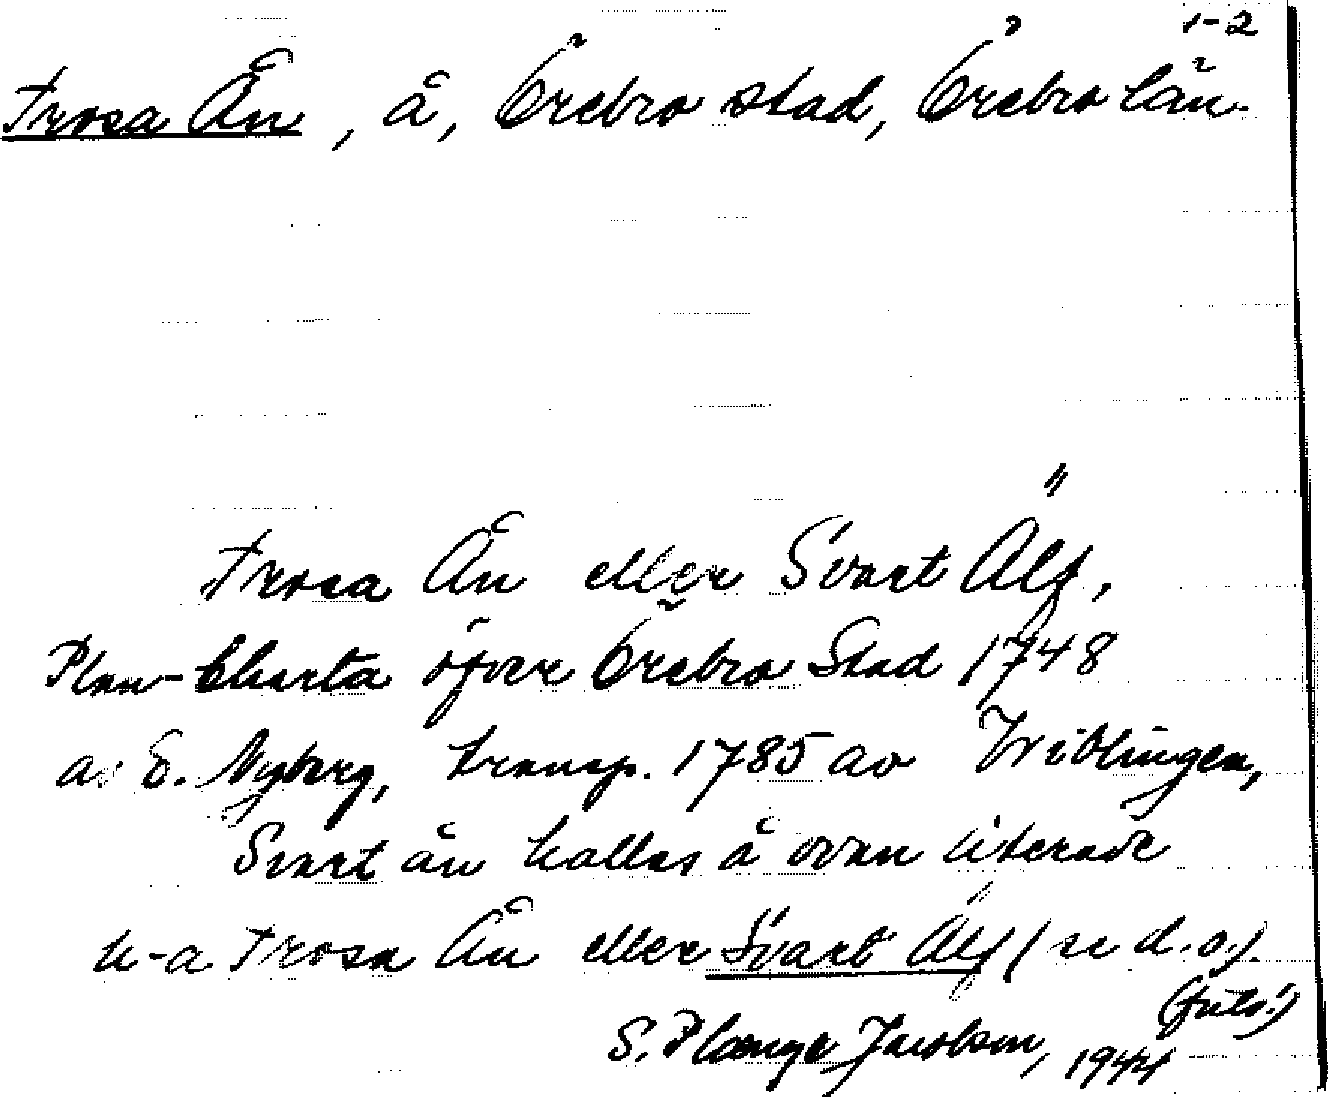 1-2
Trosa Ån, å, Örebro stad, Örebro län.
Trosa Ån eller Svart Älf,
Plan-Charta öfver Örebro Stad 1748
av E. Nyberg, transp. 1785 av Wiblingen,
Svartån kallas å ovan citerade
k-a Trosa Ån eller Svart Älf (se d.o.).
(forts.)
S. Plænge Jacobson, 1944